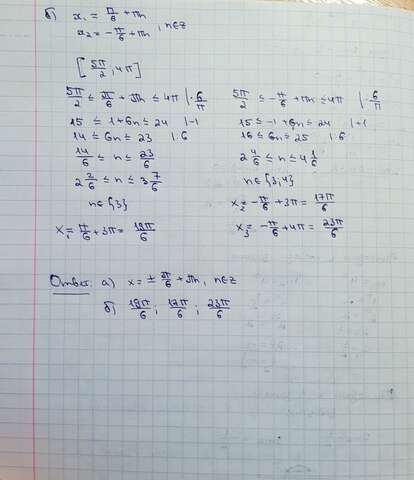 б) x₁ = π/6 + πn
x₂ = -π/6 + πn , n∈Z
[5π/2 ; 4π]
5π/2 ≤ π/6 + πn ≤ 4π |·6/π
15 ≤ 1+6n ≤ 24 |-1
14 ≤ 6n ≤ 23 |:6
14/6 ≤ n ≤ 23/6
2 2/6 ≤ n ≤ 3 7/6
n∈{3}
x₁ = π/6 + 3π = 18π/6
5π/2 ≤ -π/6 + πn ≤ 4π |·6/π
15 ≤ -1+6n ≤ 24 |+1
16 ≤ 6n ≤ 25 |:6
2 4/6 ≤ n ≤ 4 1/6
n∈{3,4}
x₂ = -π/6 + 3π = 17π/6
x₃ = -π/6 + 4π = 23π/6
Ответ: а) x = ± π/6 + πn, n∈Z
б) 18π/6 ; 17π/6 ; 23π/6